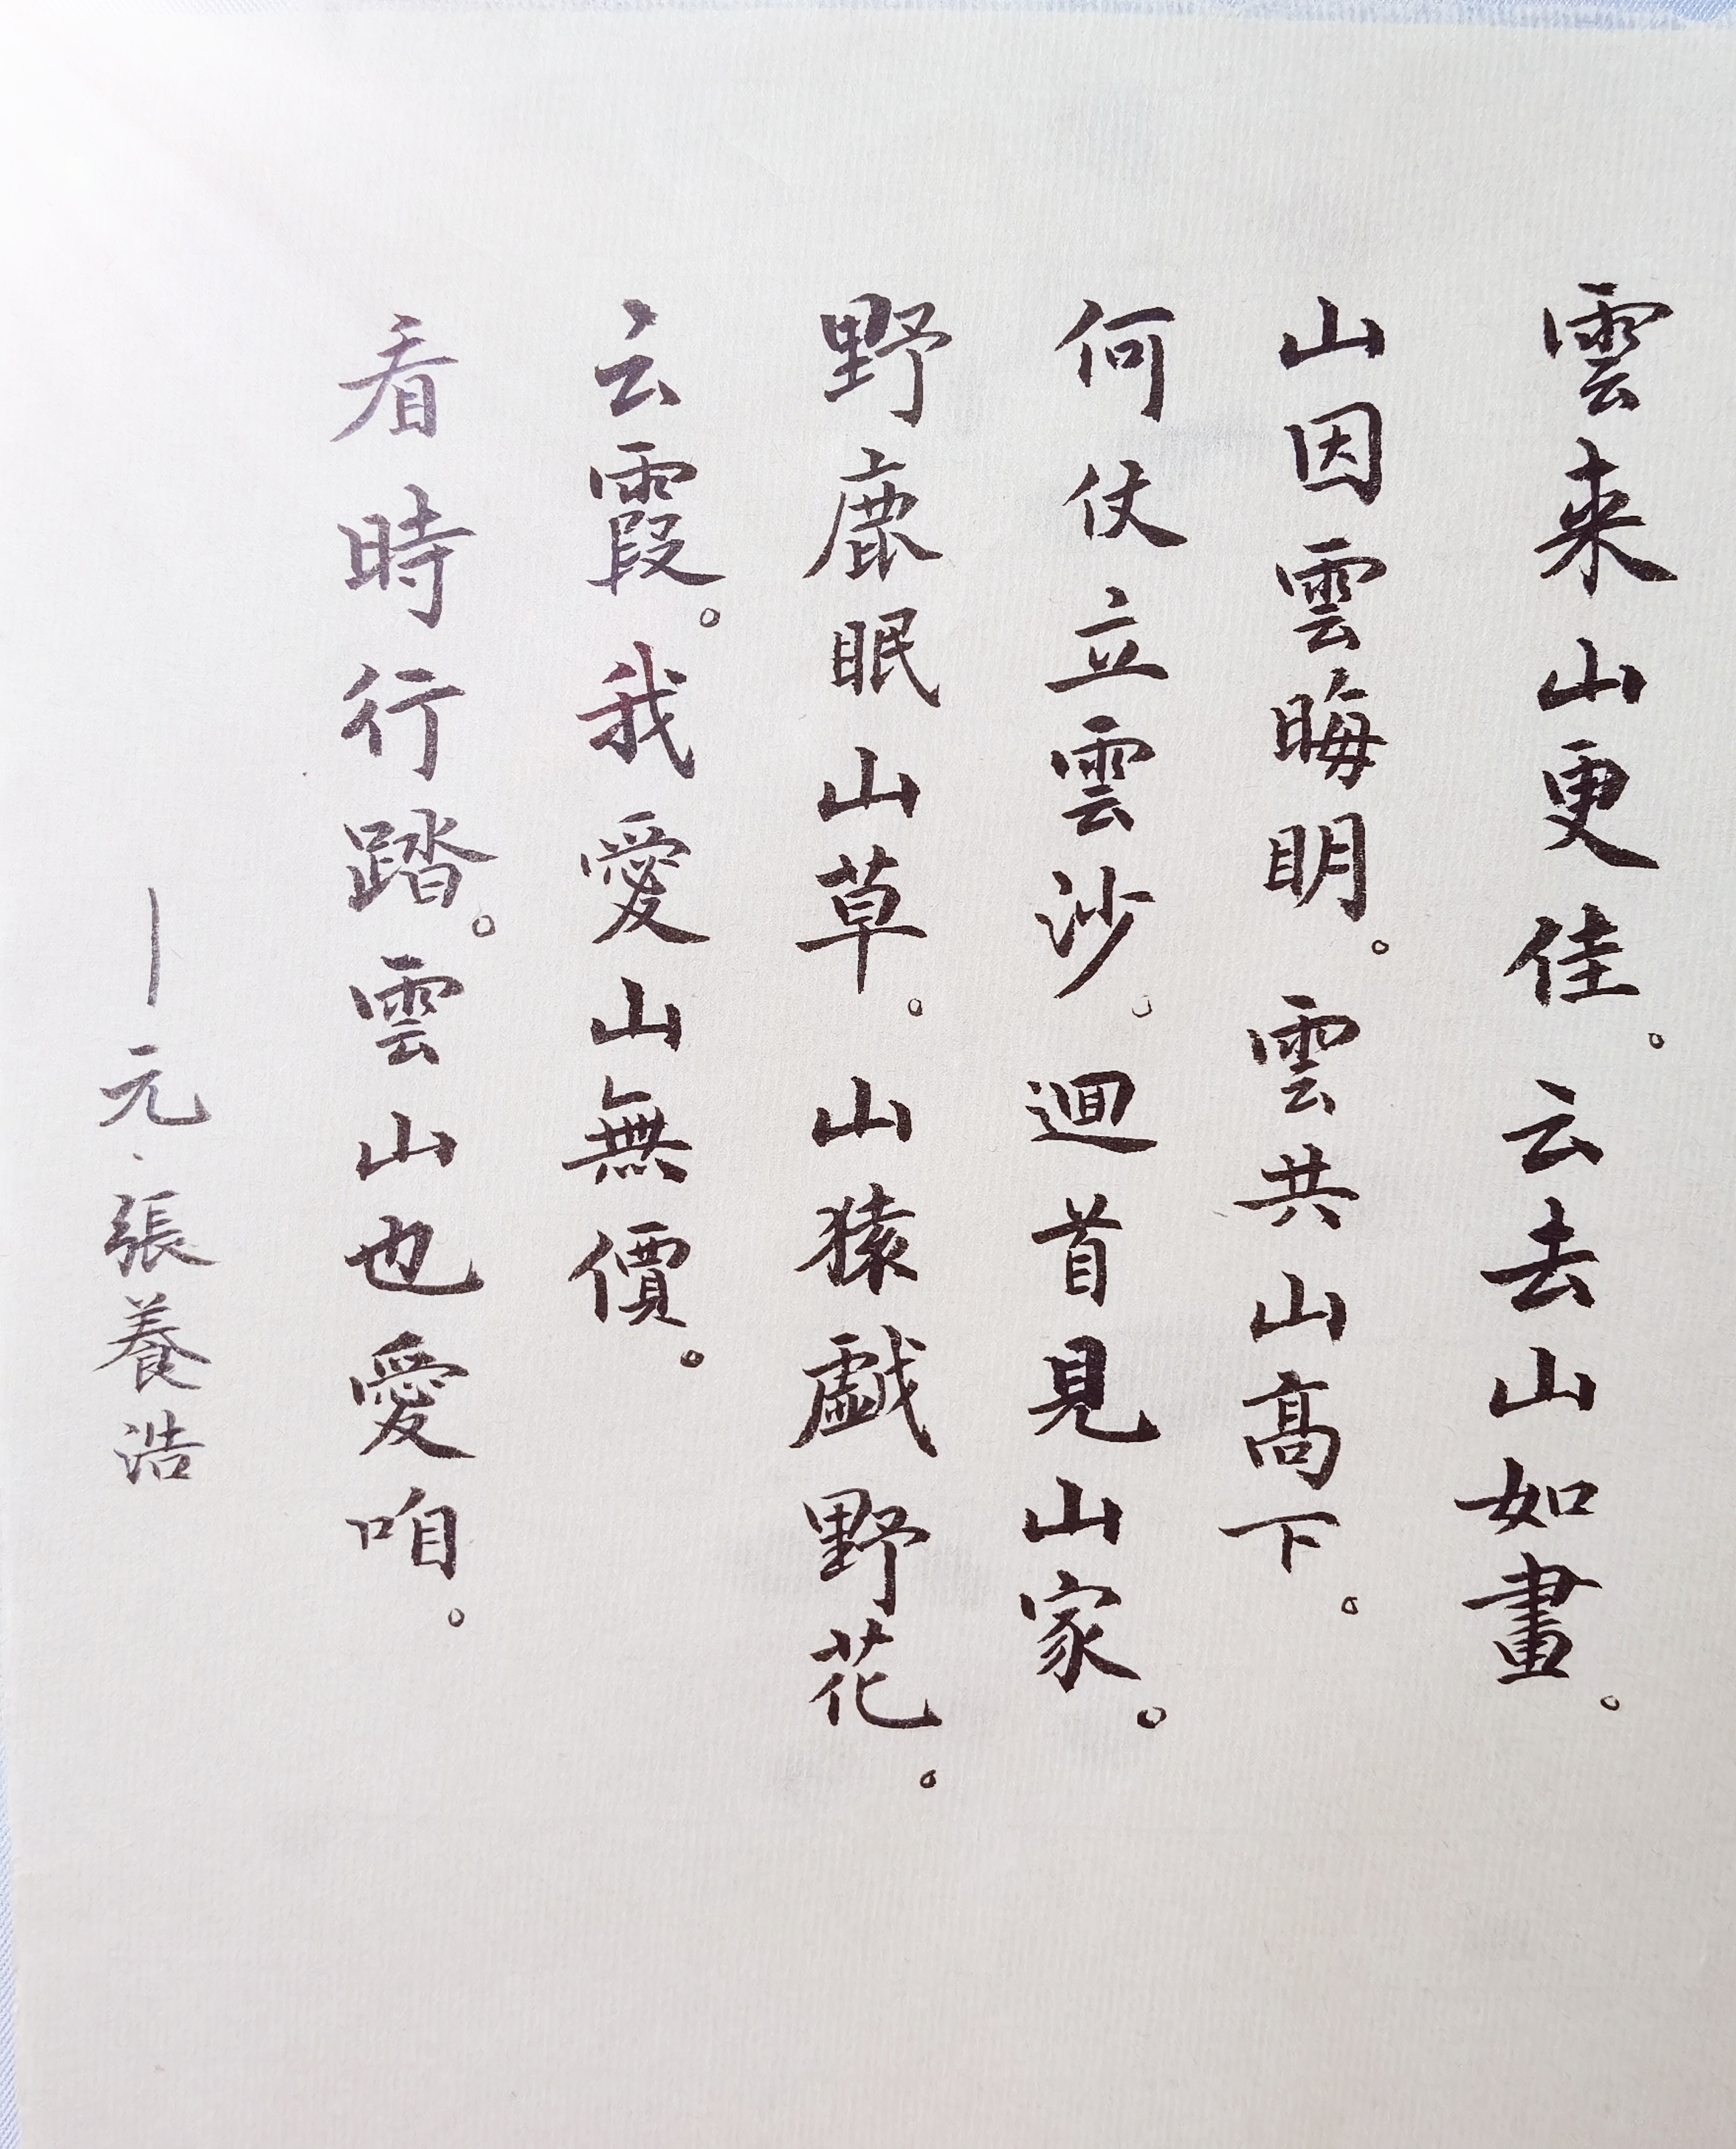 雲来山更佳。云去山如畫。
山因雲晦明。雲共山高下。
何仗立雲沙。迴首見山家。
野鹿眠山草。山猿戯野花。
云霞。我愛山無價。
看時行踏。雲山也愛咱。
—元·張養浩